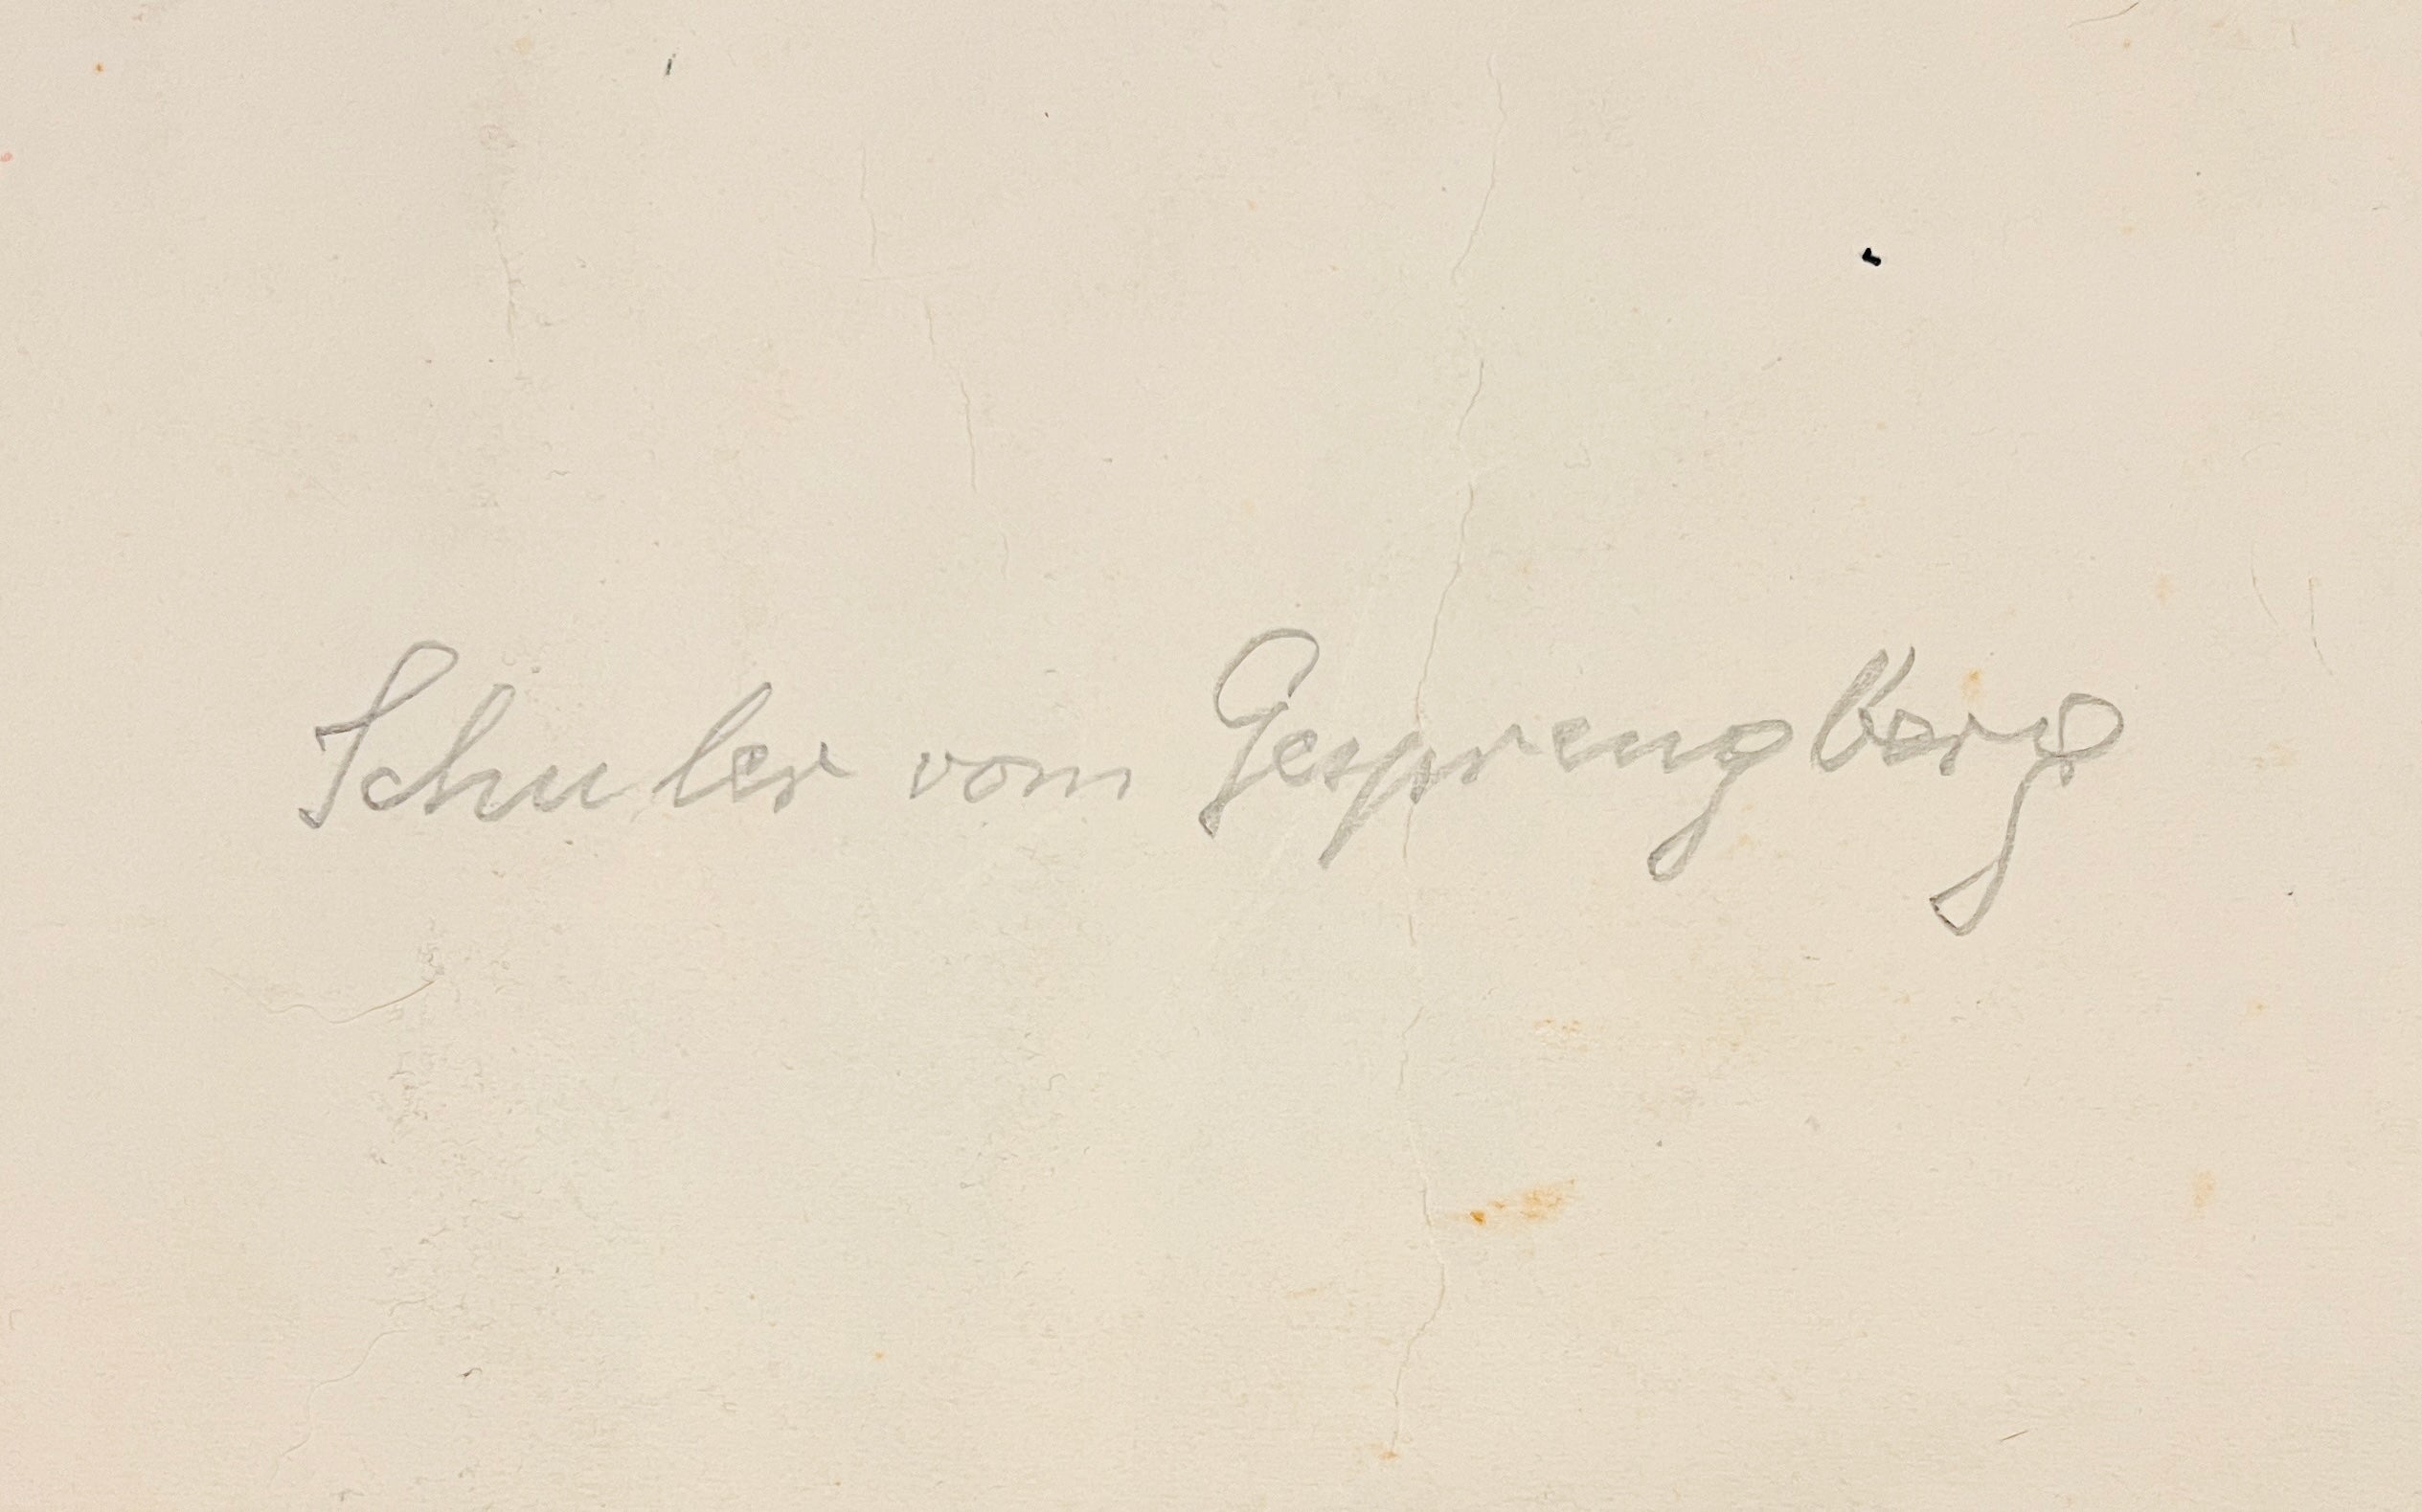 Schuler vom Gesprengberg